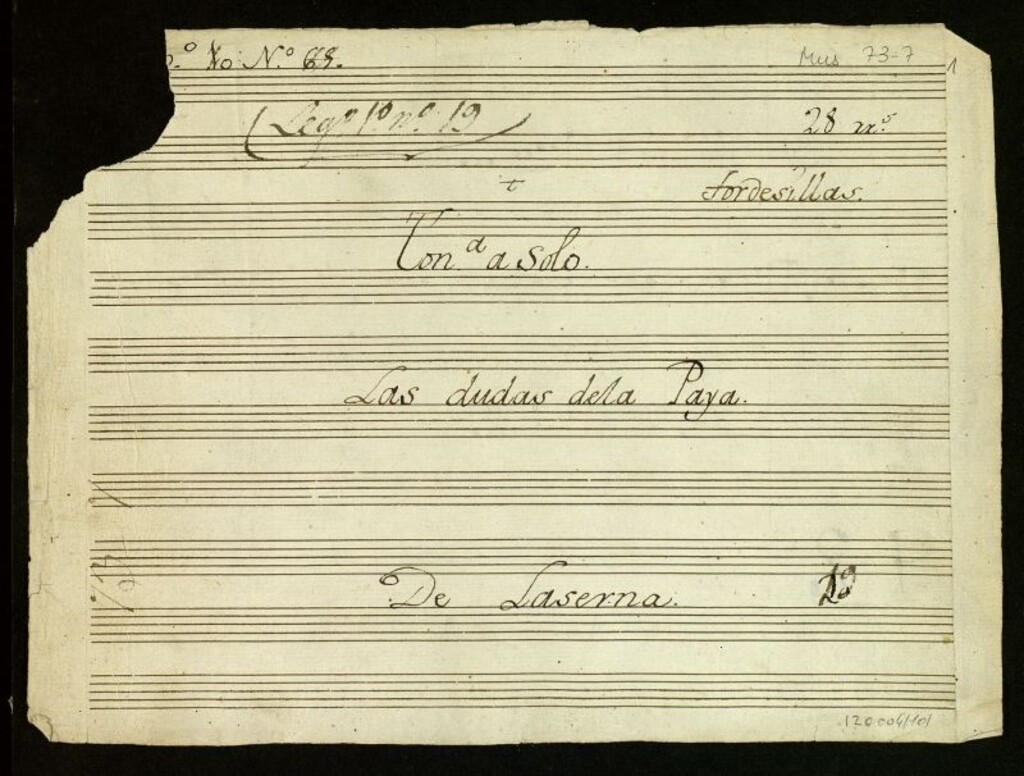 º Yo N.º 69. Mus 73-7 1
Legº 1º nº 19 28 mº
+ Tordesillas.
Ton.ª a Solo.
Las dudas dela Paya.
De Laserna. 19